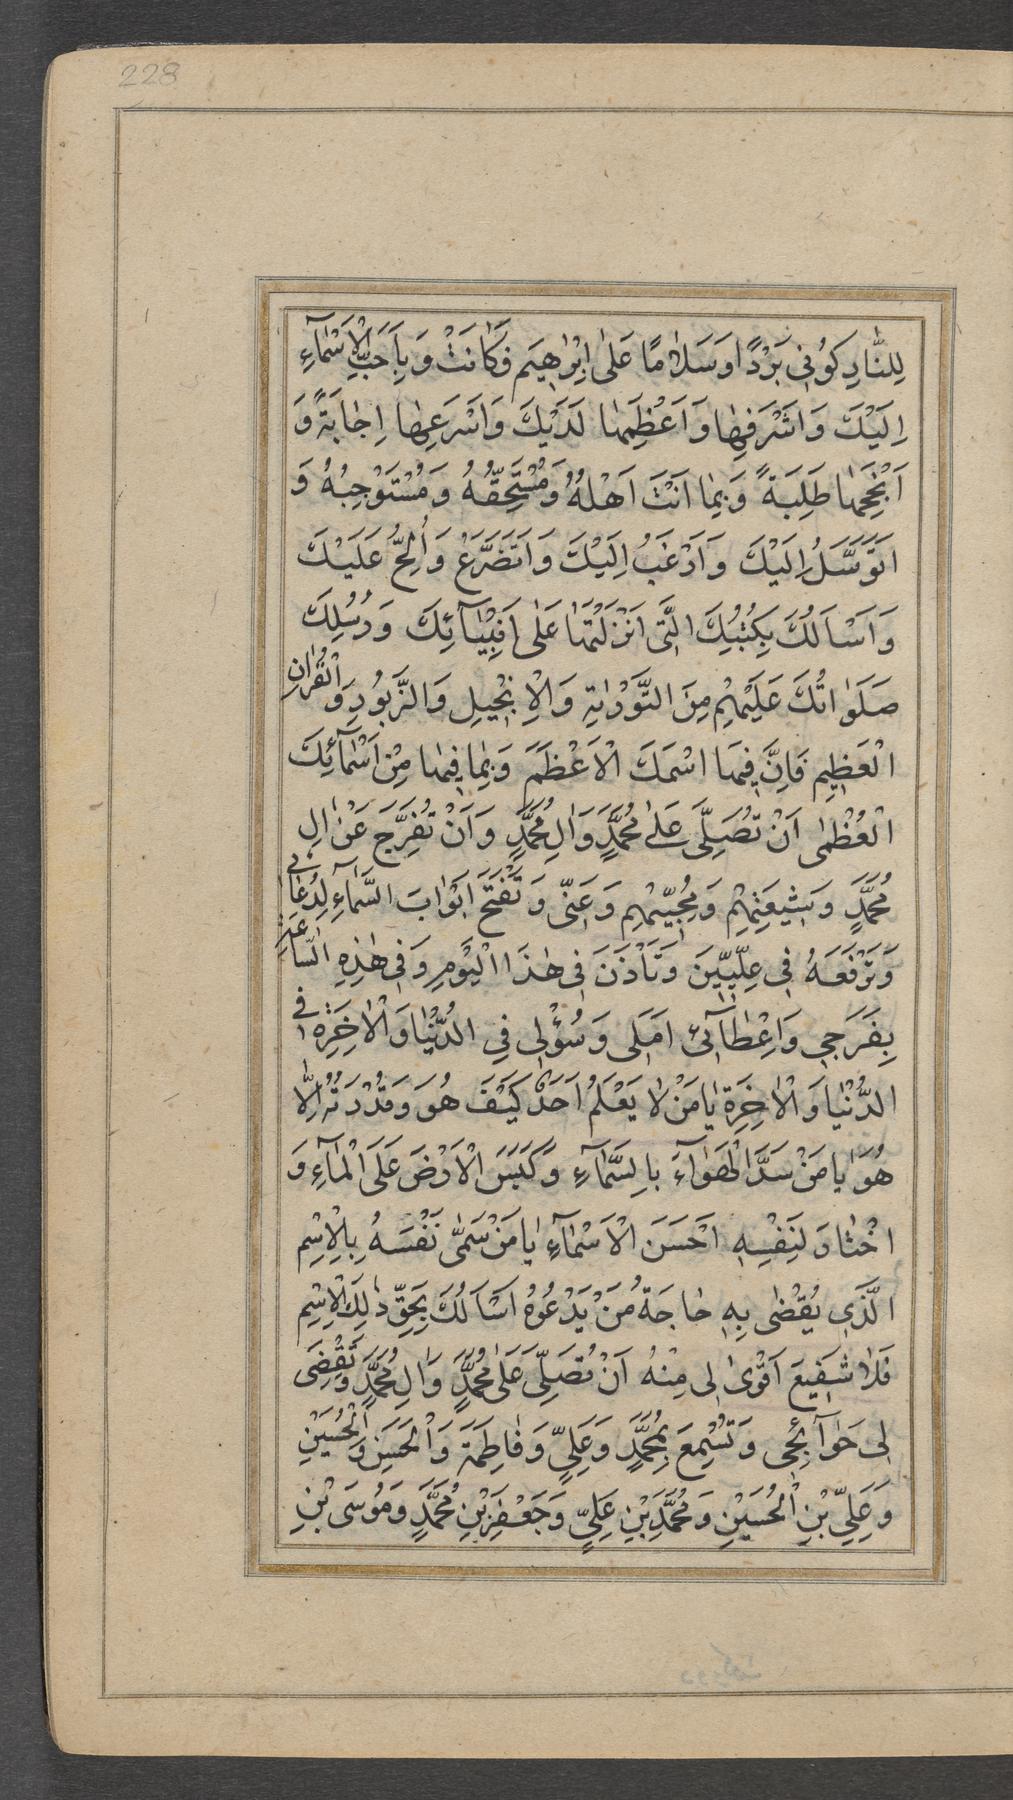 228
لِلنّارِ كُونِى بَرْدًا وَسَلامًا عَلى اِبْراهِيمَ فَكانَتْ وَ بِاَحَبِّ الْاَسْمآءِ
اِلَيْكَ وَاشْرَفِها وَاَعْظَمِها لَدَيْكَ وَاَسْرَعِها اِجابَةً وَ
اَنْجَحِها طَلِبَةً وَ بِما اَنْتَ اَهْلُهُ وَمُسْتَحِقُّهُ وَمُسْتَوْجِبُهُ وَ
اَتَوَسَّلُ اِلَيْكَ وَاَرْغَبُ اِلَيْكَ وَاَتَضَرَّعُ وَاُلِحُّ عَلَيْكَ
وَاَسْاَلُكَ بِكُتُبِكَ الَّتِى اَنْزَلْتَها عَلى اَنْبِيآئِكَ وَرُسُلِكَ
صَلَواتُكَ عَلَيْهِمْ مِنَ التَّوْراةِ وَالْاِنْجِيلِ وَالزَّبُورِ وَالْقُرْانِ
الْعَظِيمِ فَاِنَّ فِيهَا اسْمَكَ الْاَعْظَمَ وَ بِما فِيها مِنْ اَسْمآئِكَ
الْعُظْمى اَنْ تُصَلِّىَ عَلى مُحَمَّدٍ وَالِ مُحَمَّدٍ وَاَنْ تُفَرِّجَ عَنْ الِ
مُحَمَّدٍ وَشِيعَتِهِمْ وَمُحِبِّيهِمْ وَعَنِّى وَتَفْتَحَ اَبْوابَ السَّمآءِ لِدُعائِى
وَتَرْفَعَهُ فِى عِلِّيِّينَ وَتَأْذَنَ فِى هذَا الْيَوْمِ وَفِى هذِهِ السّاعَةِ
بِفَرَجِى وَاِعْطآئِى اَمَلِى وَسُؤْلِى فِى الدُّنْيا وَالْاخِرَةِ فى
الدُّنْيا وَالْاخِرَةِ يا مَنْ لا يَعْلَمُ اَحَدٌ كَيْفَ هُوَ وَقُدْرَتُهُ اِلّا
هُوَ يا مَنْ سَدَّ الْهَوآءَ بِالسَّمآءِ وَكَبَسَ الْاَرْضَ عَلَى الْمآءِ وَ
اخْتارَ لِنَفْسِهِ اَحْسَنَ الْاَسْمآءِ يا مَنْ سَمّى نَفْسَهُ بِالْاِسْمِ
الَّذِى يُقْضى بِهِ حاجَةُ مَنْ يَدْعُوهُ اَسْاَلُكَ بِحَقِّ ذلِكَ الْاِسْمِ
فَلا شَفِيعَ اَقْوى لِى مِنْهُ اَنْ تُصَلِّىَ عَلى مُحَمَّدٍ وَالِ مُحَمَّدٍ وَتَقْضِىَ
لِى حَوآئِجِى وَتُسْمِعَ بِمُحَمَّدٍ وَعَلِىٍّ وَفاطِمَةَ وَالْحَسَنِ وَالْحُسَيْنِ
وَعَلِىِّ بْنِ الْحُسَيْنِ وَمُحَمَّدِ بْنِ عَلِىٍّ وَجَعْفَرِ بْنِ مُحَمَّدٍ وَمُوسَى بْنِ